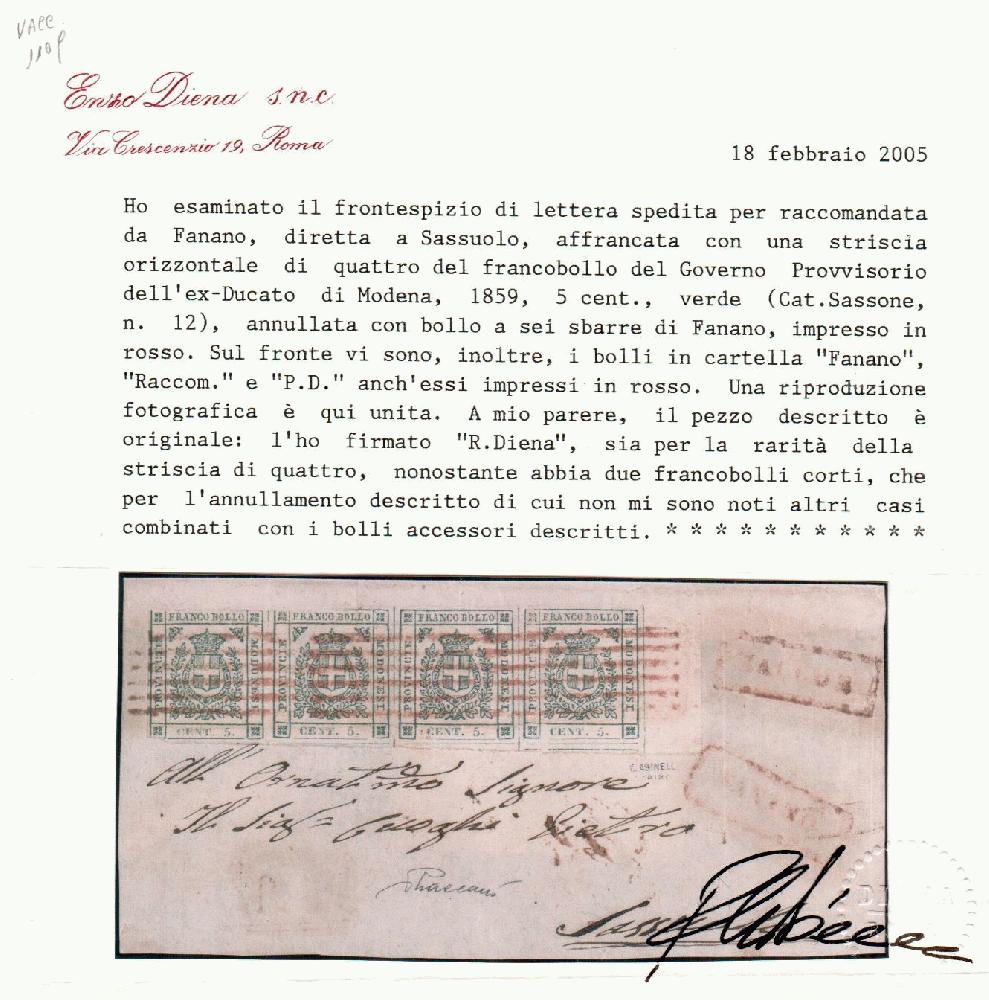 VACC
Enzo Diena s.n.c.
Via Crescenzio 19, Roma
18 febbraio 2005
Ho esaminato il frontespizio di lettera spedita per raccomandata
da Fanano, diretta a Sassuolo, affrancata con una striscia
orizzontale di quattro del francobollo del Governo Provvisorio
dell'ex-Ducato di Modena, 1859, 5 cent., verde (Cat.Sassone,
n. 12), annullata con bollo a sei sbarre di Fanano, impresso in
rosso. Sul fronte vi sono, inoltre, i bolli in cartella "Fanano",
"Raccom." e "P.D." anch'essi impressi in rosso. Una riproduzione
fotografica è qui unita. A mio parere, il pezzo descritto è
originale: l'ho firmato "R.Diena", sia per la rarità della
striscia di quattro, nonostante abbia due francobolli corti, che
per l'annullamento descritto di cui non mi sono noti altri casi
combinati con i bolli accessori descritti. * * * * * * * * * * *
FRANCO BOLLO FRANCO BOLLO FRANCO BOLLO FRANCO BOLLO
PROVINCIE MODONESI PROVINCIE MODONESI PROVINCIE MODONESI PROVINCIE MODONESI
CENT. 5. CENT. 5. CENT. 5. CENT. 5.
All' Ornatmo Signore
Il Sig Cuoghi Pietro